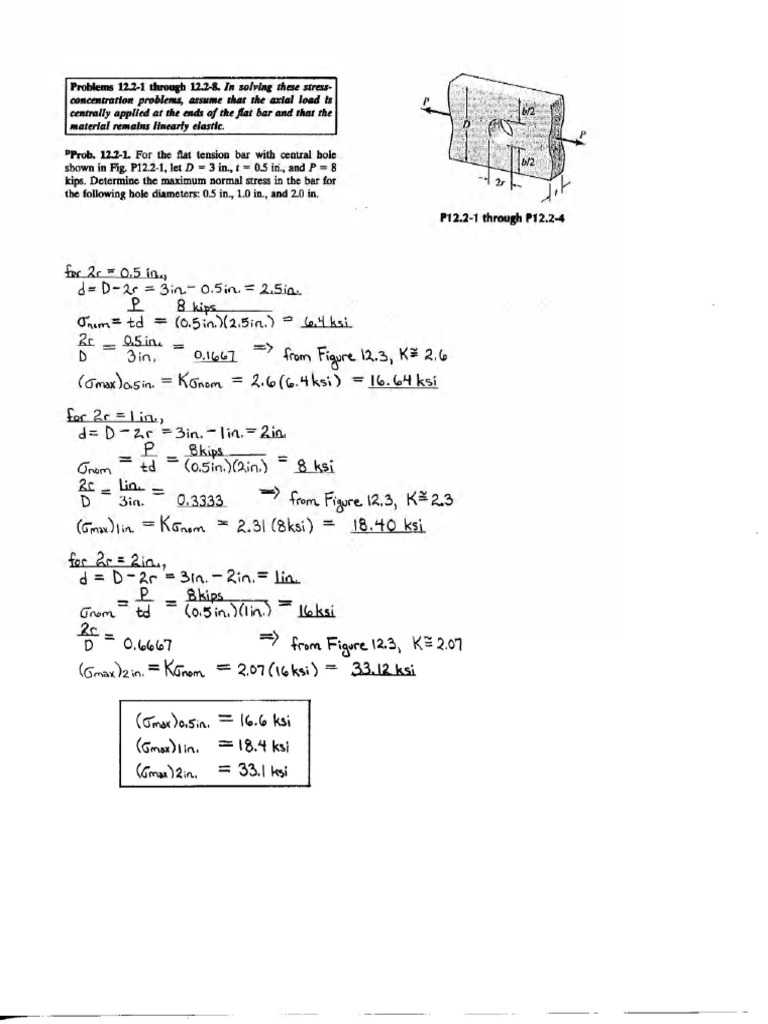 Problems 12.2-1 through 12.2-8. In solving these stress-
concentration problems, assume that the axial load is
centrally applied at the ends of the flat bar and that the
material remains linearly elastic.
ᴰProb. 12.2-1. For the flat tension bar with central hole
shown in Fig. P12.2-1, let D = 3 in., t = 0.5 in., and P = 8
kips. Determine the maximum normal stress in the bar for
the following hole diameters: 0.5 in., 1.0 in., and 2.0 in.
P
D
b/2
P
b/2
2r
t
P12.2-1 through P12.2-4
for 2r = 0.5 in.,
d = D - 2r = 3 in. - 0.5 in. = 2.5 in.
σnom = P/td = 8 kips/(0.5 in.)(2.5 in.) = 6.4 ksi
2r/D = 0.5 in./3 in. = 0.1667 => from Figure 12.3, K ≅ 2.6
(σmax)0.5in. = Kσnom = 2.6 (6.4 ksi) = 16.64 ksi
for 2r = 1 in.,
d = D - 2r = 3 in. - 1 in. = 2 in.
σnom = P/td = 8 kips/(0.5 in.)(2 in.) = 8 ksi
2r/D = 1 in./3 in. = 0.3333 => from Figure 12.3, K ≅ 2.3
(σmax)1in. = Kσnom = 2.31 (8 ksi) = 18.40 ksi
for 2r = 2 in.,
d = D - 2r = 3 in. - 2 in. = 1 in.
σnom = P/td = 8 kips/(0.5 in.)(1 in.) = 16 ksi
2r/D = 0.6667 => from Figure 12.3, K ≅ 2.07
(σmax)2in. = Kσnom = 2.07 (16 ksi) = 33.12 ksi
(σmax)0.5in. = 16.6 ksi
(σmax)1in. = 18.4 ksi
(σmax)2in. = 33.1 ksi